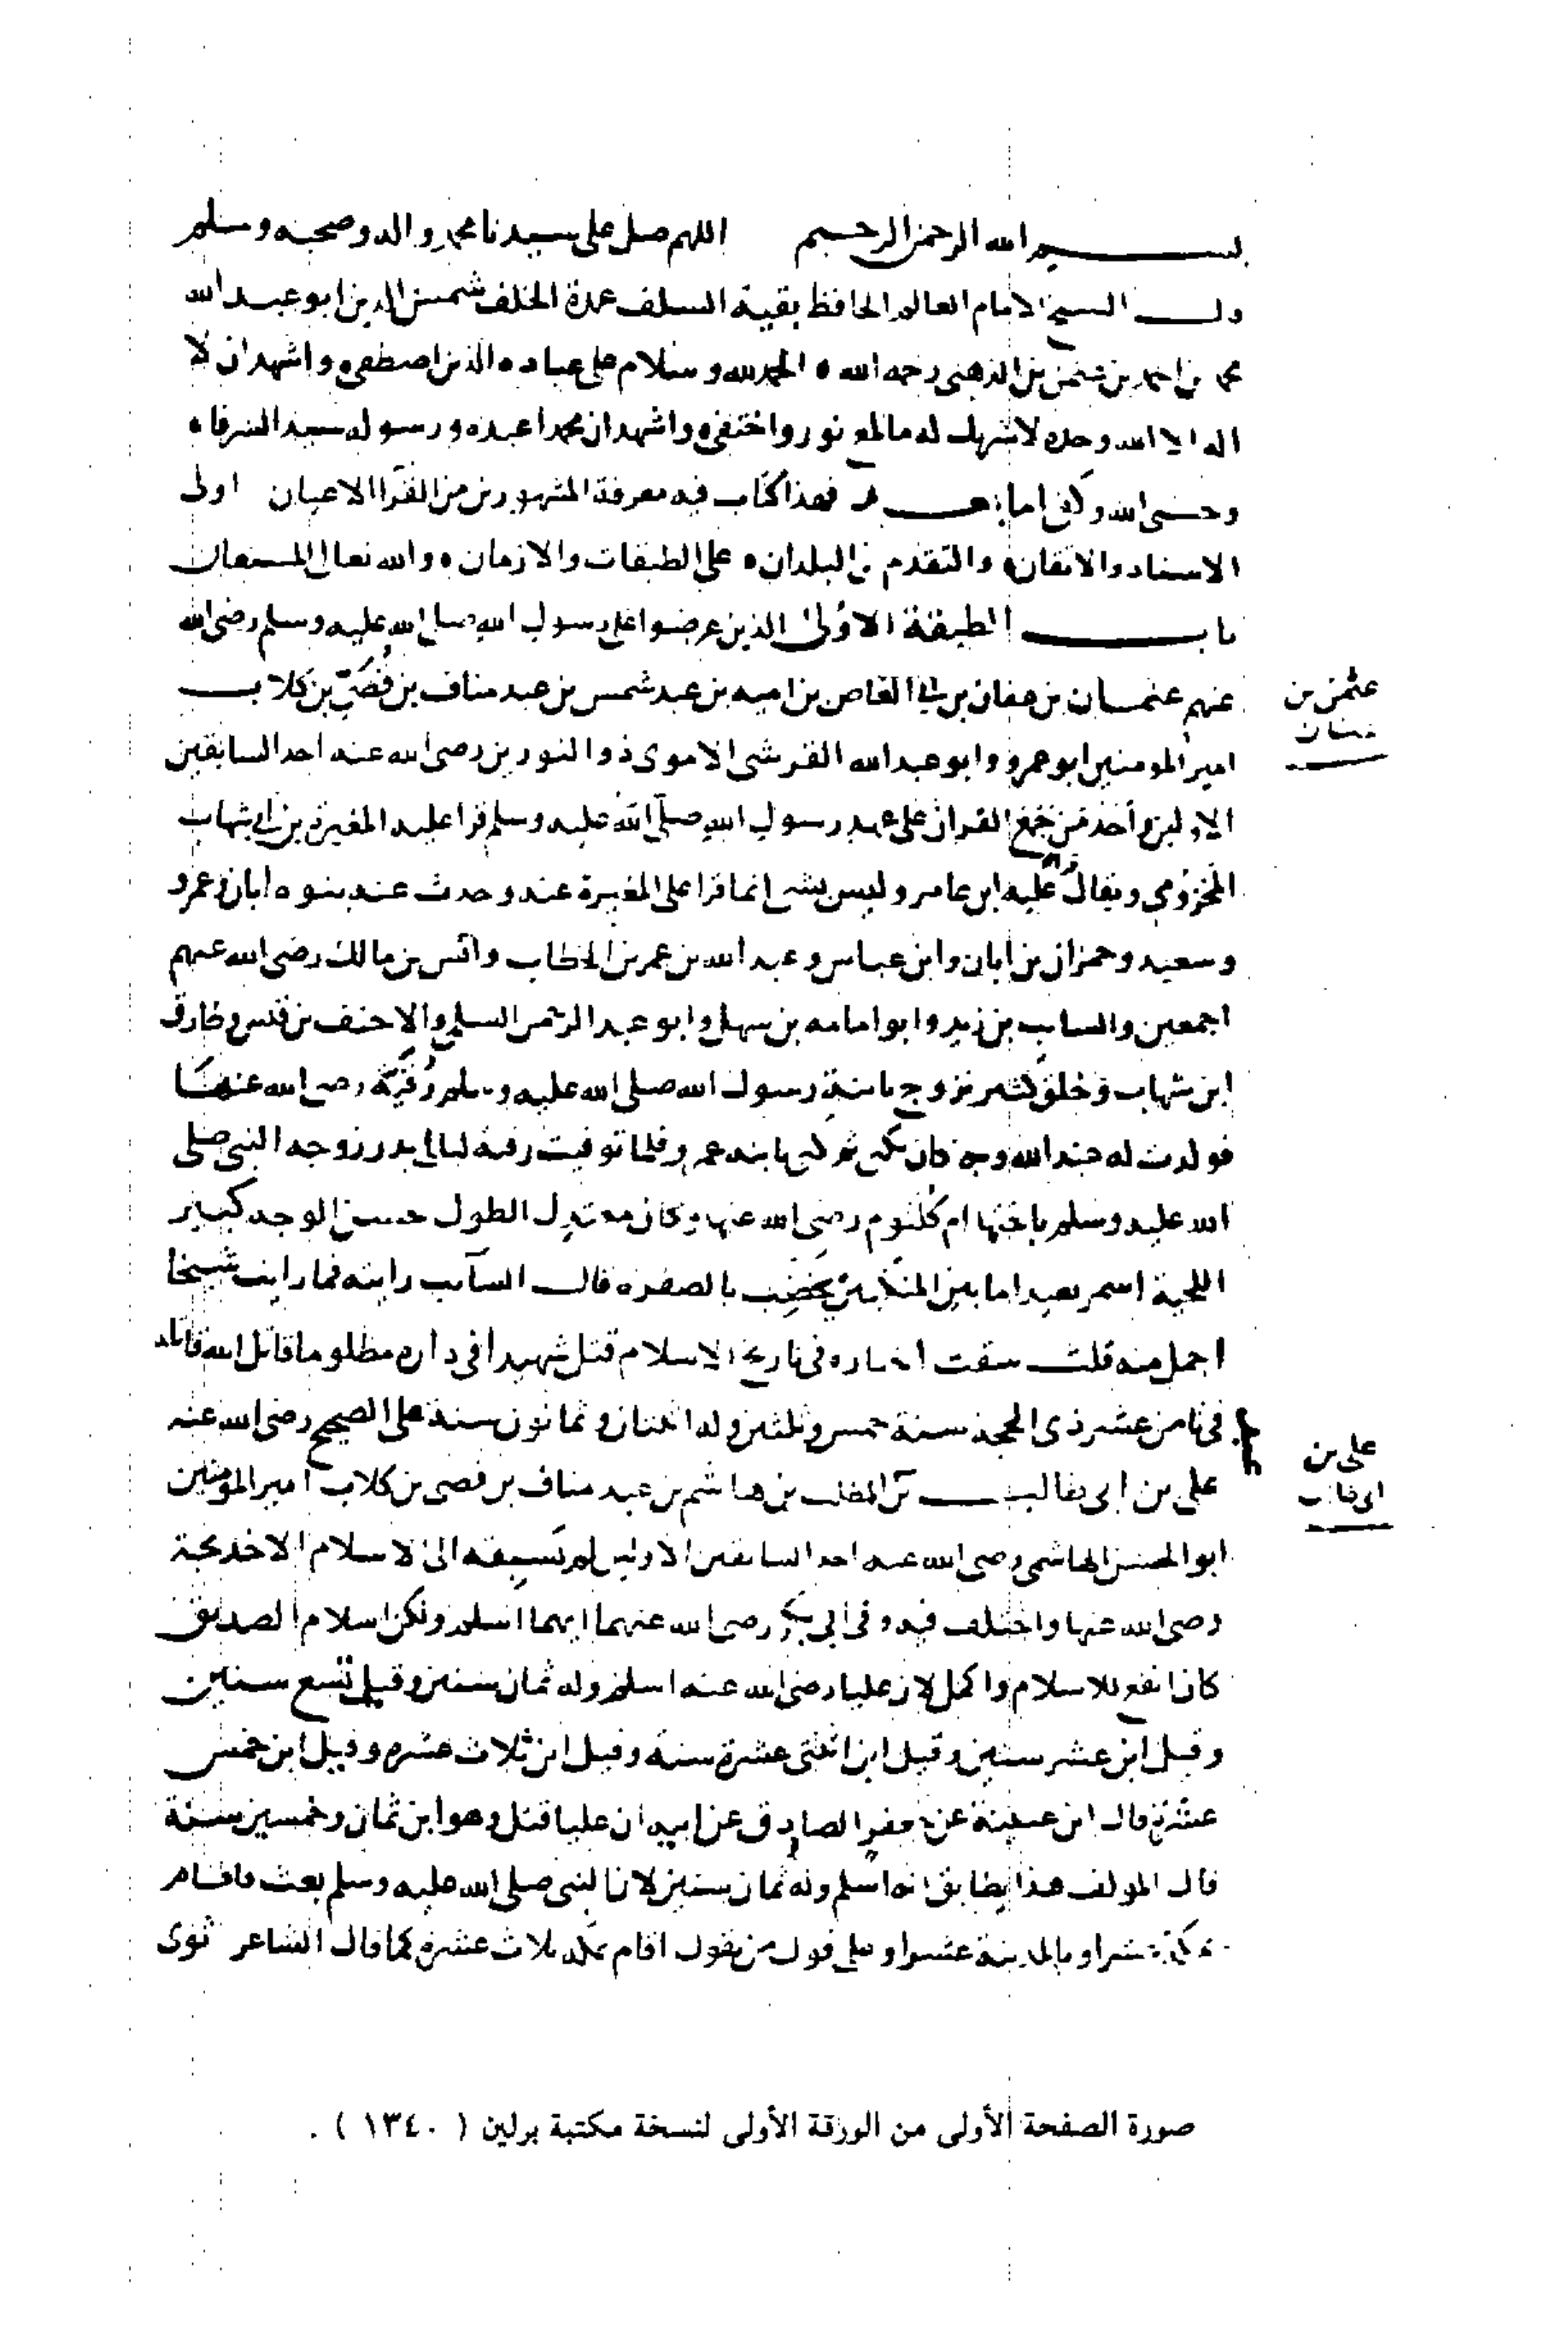 بسم الله الرحمن الرحيم اللهم صل على سيدنا محمد واله وصحبه وسلم
الشيخ الامام العالم الحافظ بقية السلف عمدة الخلف شمس الدين ابو عبد الله
محمد بن احمد بن عثمن بن الذهبى رحمه الله الحمد لله وسلام على عباده الذين اصطفى واشهد ان لا
اله الا الله وحده لا شريك له ما لمع نور واختفى واشهد ان محمدا عبده ورسوله سيد الشرفاء
وحسبى الله وكفى اما بعد فهذا كتاب فيه معرفة المشهورين من القرا الاعيان اولى
الاسناد والاتقان والتقدم فى البلدان على الطبقات والازمان والله تعالى المستعان
باب الطبقة الاولى الذين عرضوا على رسول الله صلى الله عليه وسلم رضى الله
عنهم عثمان بن عفان بن ابى العاص بن اميه بن عبد شمس بن عبد مناف بن قصى بن كلاب
عثمن بن
عفان
امير المومنين ابو عمرو وابو عبد الله القرشى الاموى ذو النورين رضى الله عنه احد السابقين
الاولين واحد من جمع القران على عهد رسول الله صلى الله عليه وسلم قرا عليه المغيرة بن ابى شهاب
المخزومى ويقال قرا عليه ابن عامر وليس بشى انما قرا على المغيرة عنه وحدث عنه بنوه ابان وعمرو
وسعيد وحمران بن ابان وابن عباس وعبد الله بن عمر بن الخطاب وانس بن مالك رضى الله عنهم
اجمعين والسايب بن زيد وابو امامه بن سهل وابو عبد الرحمن السلمى والاحنف بن قيس وطارق
ابن شهاب وخلق كثير تزوج بابنة رسول الله صلى الله عليه وسلم رقية رضى الله عنهما
فولدت له عبد الله وبه كان يكنى ثم كنى بابنه عمرو فلما توفيت رقية ليالى بدر زوجه النبى صلى
الله عليه وسلم باختها ام كلثوم رضى الله عنها وكان معتدل الطول حسن الوجه كبير
اللحية اسمر بعيد ما بين المنكبين يخضب بالصفره قال السآئب رايته فما رايت شيخا
اجمل منه قلت سقت اخباره فى تاريخ الاسلام قتل شهيدا فى داره مظلوما قاتل الله قاتله
فى ثامن عشر ذى الحجة سنة خمس وثلثين وله اثنتان وثمانون سنة على الصحيح رضى الله عنه
على بن ابى طالب بن المطلب بن هاشم بن عبد مناف بن قصى بن كلاب امير المومنين
على بن
ابى طالب
ابو الحسن الهاشمى رضى الله عنه احد السابقين الاولين لم يسبقه الى الاسلام الا خديجة
رضى الله عنها واختلف فيه وفى ابى بكر رضى الله عنهما ايهما اسلم ولكن اسلام الصديق
كان انفع للاسلام واكمل لان عليا رضى الله عنه اسلم وله ثمان سنين وقيل تسع سنين
وقيل ابن عشر سنين وقيل ابن اثنتى عشرة سنة وقيل ابن ثلاث عشره وقيل ابن خمس
عشرة قال ابن عيينة عن جعفر الصادق عن ابيه ان عليا قتل وهو ابن ثمان وخمسين سنة
قال المولف هذا يطابق انه اسلم وله ثمان سنين لان النبى صلى الله عليه وسلم بعث فاقام
بمكة عشرا وبالمدينة عشرا وعلى قول من يقول اقام بمكه ثلاث عشرة كما قال الشاعر ثوى
صورة الصفحة الأولى من الورقة الأولى لنسخة مكتبة برلين ( ١٣٤٠ ) .